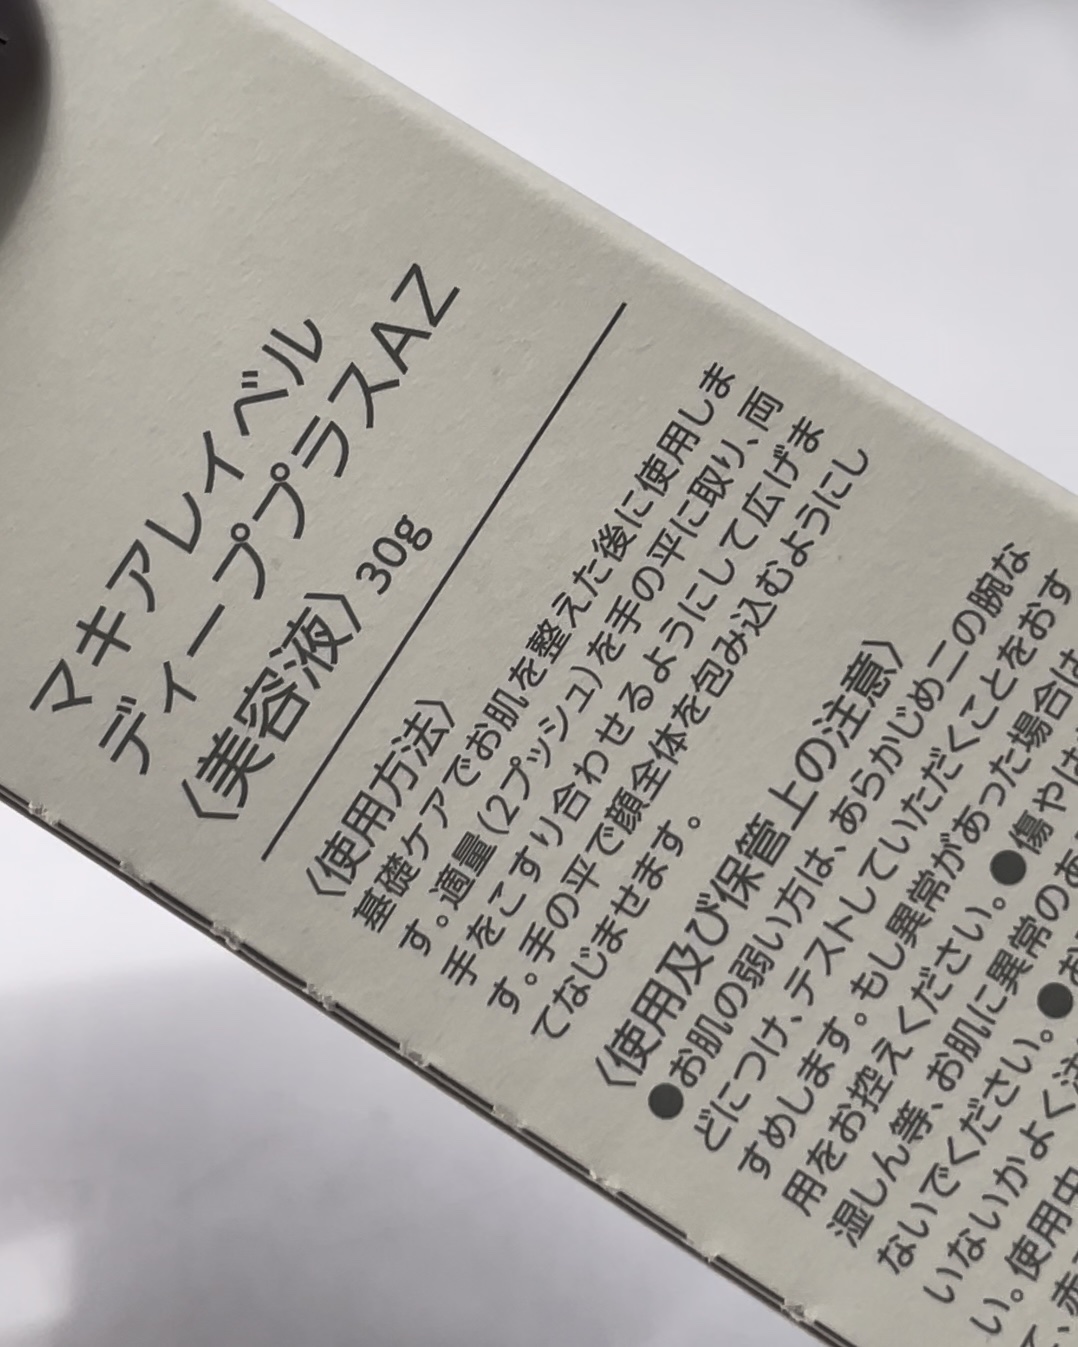 マキアレイベル
ディーププラスAZ
〈美容液〉 30g
〈使用方法〉
基礎ケアでお肌を整えた後に使用しま
す。適量(2プッシュ)を手の平に取り、両
手をこすり合わせるようにして広げま
す。手の平で顔全体を包み込むようにし
てなじませます。
〈使用及び保管上の注意〉
●お肌の弱い方は、あらかじめ二の腕な
どにつけ、テストしていただくことをおす
すめします。もし異常があった場合は
用をお控えください。●傷やは
湿しん等、お肌に異常のあ
ないでください。●お
いないかよく注
い。使用中
て、赤